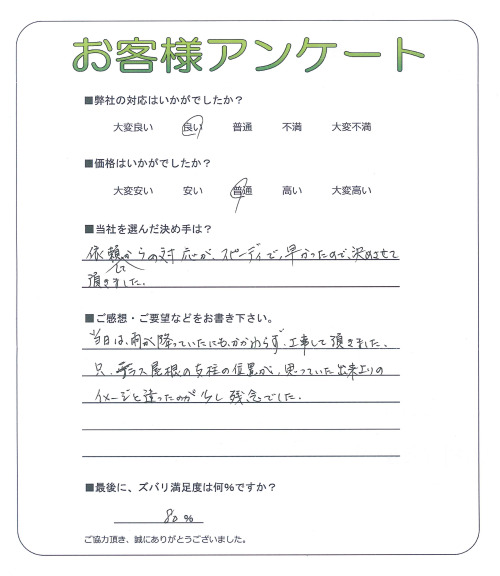 お客様アンケート
■弊社の対応はいかがでしたか？
大変良い 良い 普通 不満 大変不満
■価格はいかがでしたか？
大変安い 安い 普通 高い 大変高い
■当社を選んだ決め手は？
依頼してからの対応が、スピーディで、早かったので、決めさせて
頂きました。
■ご感想・ご要望などをお書き下さい。
当日は、雨が降っていたにも、かかわらず、工事して頂きました。
只、テラス屋根の支柱の位置が、思っていた出来上りの
イメージと違ったのが少し残念でした。
■最後に、ズバリ満足度は何％ですか？
80 %
ご協力頂き、誠にありがとうございました。